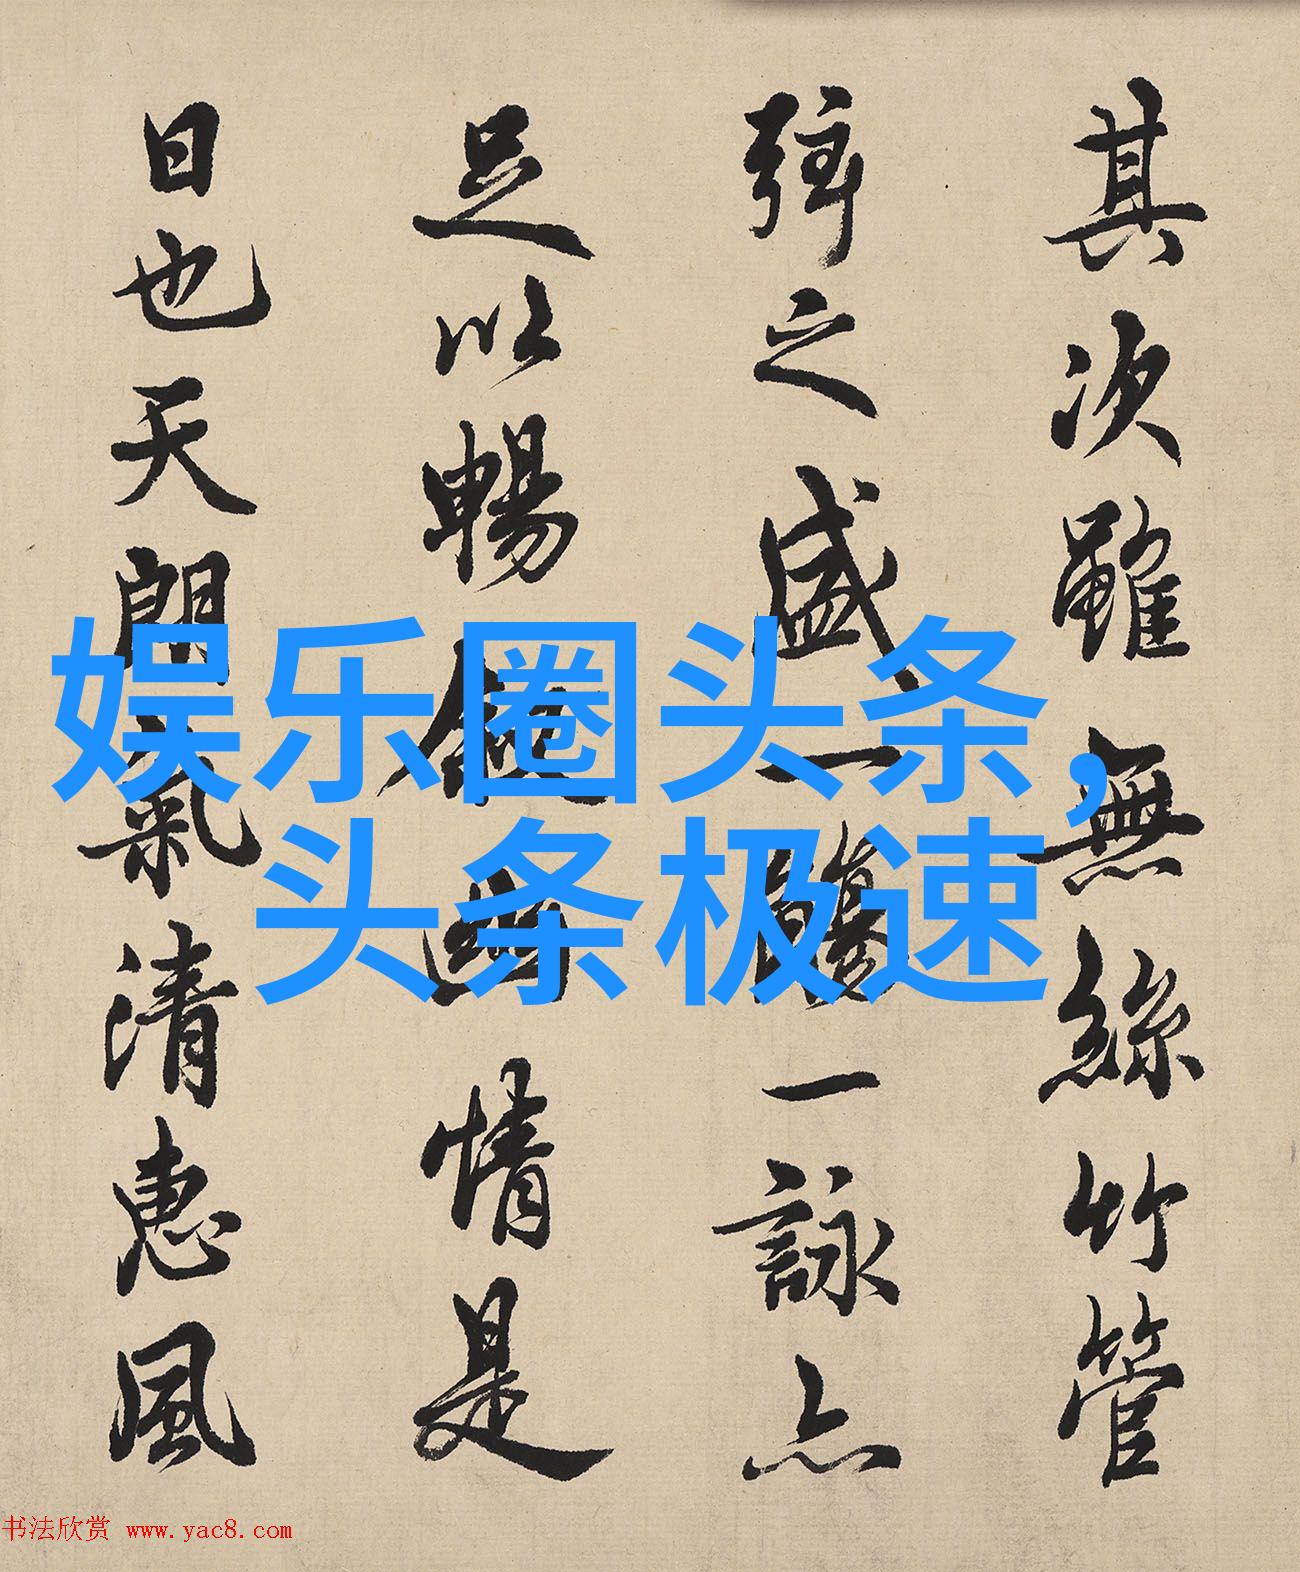 其次雖無絲竹管
弦之盛一觴一詠亦
足以暢敘幽情是
日也天朗氣清惠風
娱乐圈头条，
头条极速
书法欣赏 www.yac8.com